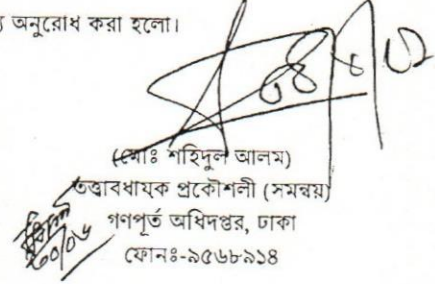 অনুরোধ করা হলো।
(মোঃ শহিদুল আলম)
তত্ত্বাবধায়ক প্রকৌশলী (সমন্বয়)
গণপূর্ত অধিদপ্তর, ঢাকা
ফোনঃ-৯৫৬৮৯১৪